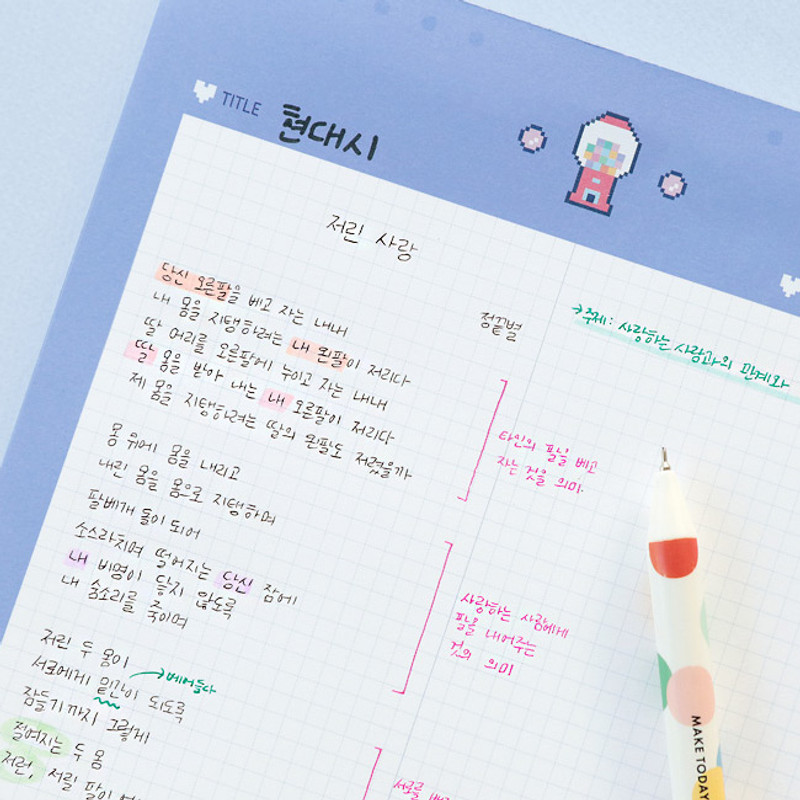 TITLE 현대시
저린 사랑
정끝별
→주제: 사랑하는 사람과의 관계와
당신 오른팔을 베고 자는 내내
내 몸을 지탱하려는 내 왼팔이 저리다
딸 머리를 오른팔에 누이고 자는 내내
딸 몸을 받아 내는 내 오른팔이 저리다
제 몸을 지탱하려는 딸의 왼팔도 저렸을까
타인의 팔을 베고
자는 것을 의미.
몸 위에 몸을 내리고
내린 몸을 몸으로 지탱하며
팔베개 돌이 되어
소스라치며 떨어지는 당신 잠에
내 비명이 닿지 않도록
내 숨소리를 죽이며
사랑하는 사람에게
팔을 내어주는
것의 의미
저린 두 몸이
서로에게 밑간이 되도록
→베어들다
잠들기까지 그렇게
절여지는 두 몸
저런, 저릴 팔이
서로를
MAKE TODAY